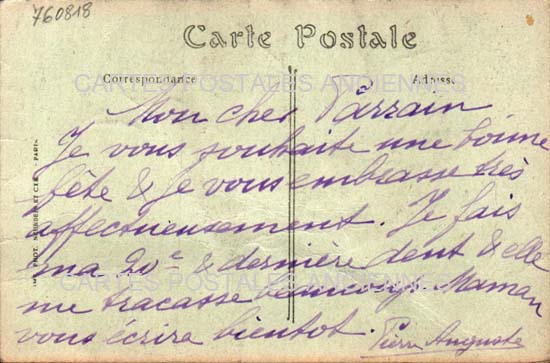 760818
Carte Postale
Correspondance
Adresse
CARTES POSTALES ANCIENNES
Mon cher Parrain
Je vous souhaite une bonne
fête & je vous embrasse très
affectueusement. Je fais
ma 20e & dernière dent & elle
CARTES POSTALES ANCIENNES
me tracasse beaucoup. Maman
vous écrire bientot.
Pierre Auguste
IMP. PHOT. NEURDEIN ET CIE - PARIS